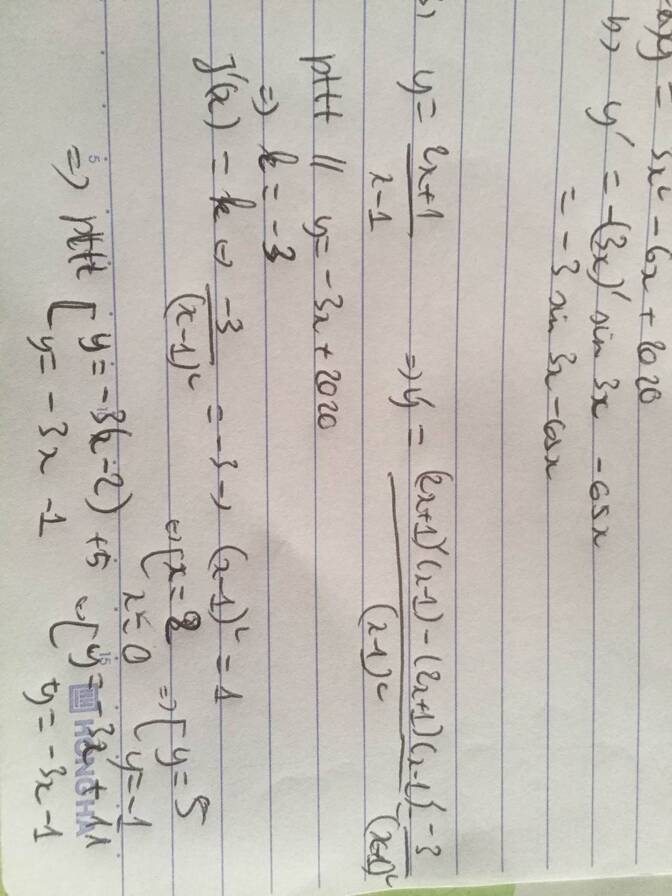 = 3x² - 6x + 2020
b) y' = -(3x)' sin 3x - cos x
= -3 sin 3x - cos x
y = 2x+1/x-1 => y' = (2x+1)'(x-1) - (2x+1)(x-1)'/(x-1)² = -3/(x-1)²
pttt // y = -3x + 2020
=> k = -3
y'(x) = k <=> -3/(x-1)² = -3 => (x-1)² = 1
<=> [ x = 2 => [ y = 5
x = 0 y = -1
=> pttt [ y = -3(x-2) + 5 <=> [ y = -3x + 11
y = -3x - 1 y = -3x - 1
5
15
HONG HA